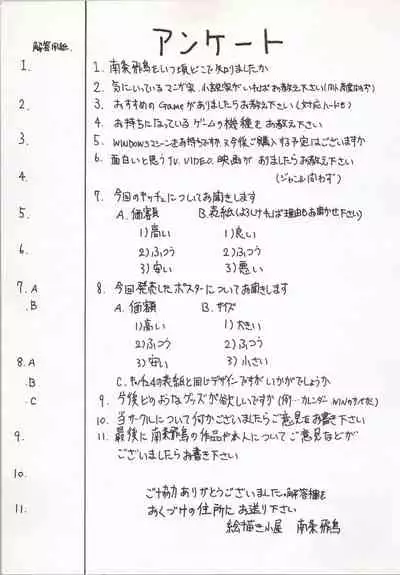 アンケート
解答用紙
1. 南条飛鳥をいつ頃どこで知りましたか
2. 気にいっているマンガ家、小説家がいればお教え下さい(同人商業問わず)
3. おすすめのGameがありましたらお教え下さい(対応ハードも)
4. お持ちになっているゲームの機種をお教え下さい
5. WINDOWSマシーンをお持ちですか、又今後ご購入する予定はございますか
6. 面白いと思うTV. VIDEO. 映画がありましたらお教え下さい
(ジャンル問わず)
7. 今回のキャッチェについてお聞きします
A. 価額 B. 表紙(よろしければ理由もお聞かせ下さい)
1)高い 1)良い
2)ふつう 2)ふつう
3)安い 3)悪い
8. 今回発売したポスターについてお聞きします
A. 価額 B. サイズ
1)高い 1)大きい
2)ふつう 2)ふつう
3)安い 3)小さい
C. キャッチェ4の表紙と同じデザインですがいかがでしょうか
9. 今後どのようなグッズが欲しいですか(例…カレンダー
10. 当サークルについて何かございましたらご意見をお書き下さい
11. 最後に南条飛鳥の作品や本人についてご意見などが
ございましたらお書き下さい
ご協力ありがとうございました。解答欄を
あくづけの住所にお送り下さい
絵描き小屋 南条飛鳥
1.
2.
3.
4.
5.
6.
7. A
. B
8. A
. B
. C
9.
10.
11.